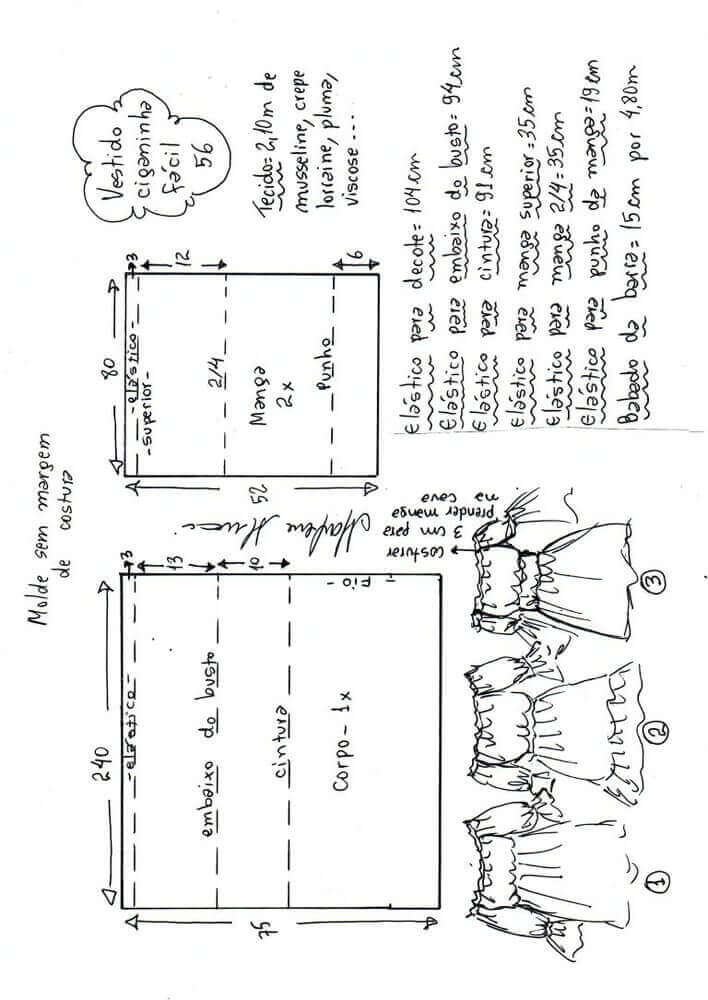 Molde sem margem
de costura
Vestido
ciganinha
fácil
56
Tecido=2,10m de
musseline, crepe
lorraine, pluma,
viscose ....
240
3
-elástico-
13
embaixo do busto
10
cintura
Corpo-1x
Fio
75
80
3
-elástico-
-superior-
12
2/4
Manga
2x
Punho
6
52
Marlene Mukai
costurar
3 cm para
prender manga
na cava
1
2
3
Elástico para decote=104cm
Elástico para embaixo do busto=94cm
Elástico para cintura=91cm
Elástico para manga superior=35cm
Elástico para manga 2/4=35cm
Elástico para punho da manga=19cm
Babado da barra=15cm por 4,80m